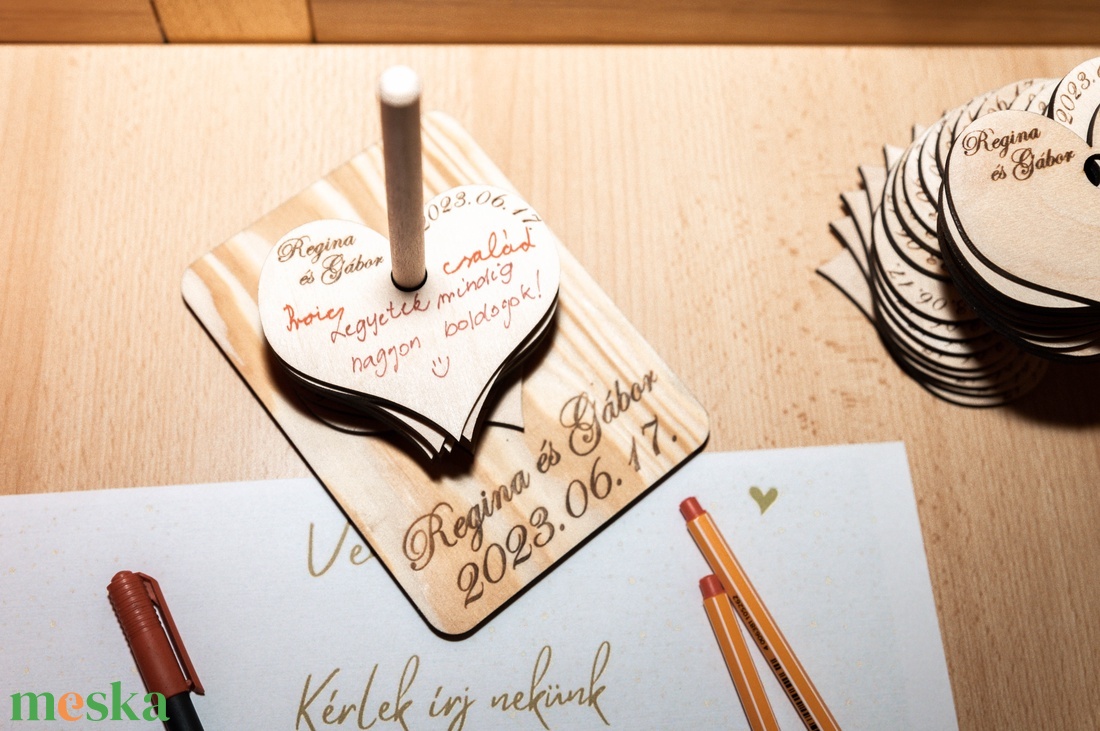 Regina
és Gábor
2023.06.17.
család
Legyetek mindig
nagyon boldogok!
Regina és Gábor
2023.06.17.
Regina
és Gábor
2023.0
06.17.
Kérlek írj nekünk
meska